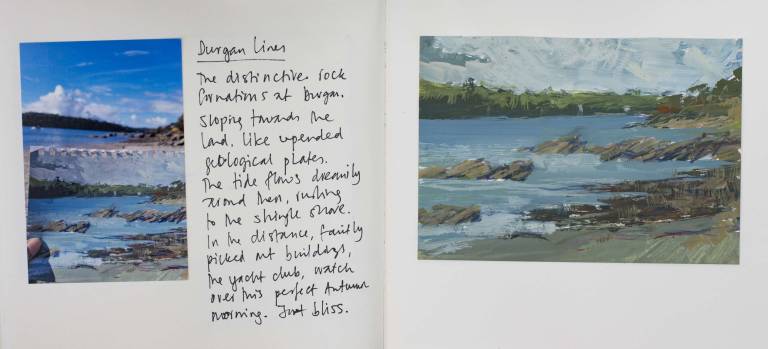 Durgan Lines
The distinctive rock
formations at Durgan.
Sloping towards the
land, like upended
geological plates.
The tide flows dreamily
around them, rushing
to the shingle shore.
In the distance, faintly
picked out buildings,
the yacht club, watch
over this perfect Autumn
morning. Just bliss.